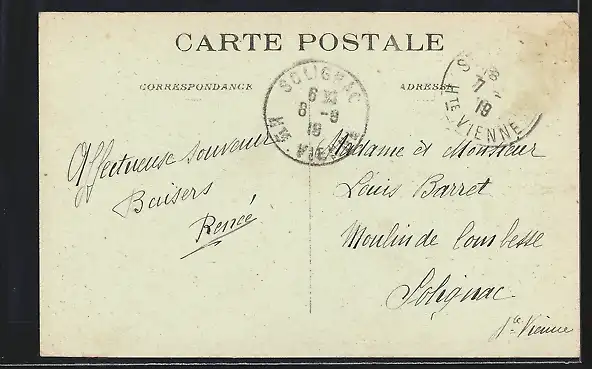 CARTE POSTALE
CORRESPONDANCE
ADRESSE
SOLIGNAC
8 -9
19
VIENNE
7 -
19
Hte VIENNE
Affectueux souvenir
Baisers
Renée
Madame et Monsieur
Louis Barret
Moulin de Combesse
Solignac
Hte Vienne